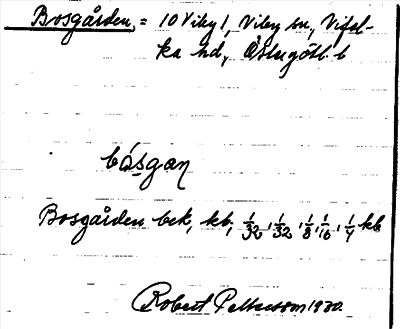 Bosgården, = 10 Viby 1, Viby sn, Vifol-
ka hd, Östergötl. l
bósgaɳ
Bosgården bek, kb, 1/32, 1/32, 1/8, 1/16, 1/4 kb
Robert Pettersson 1930.